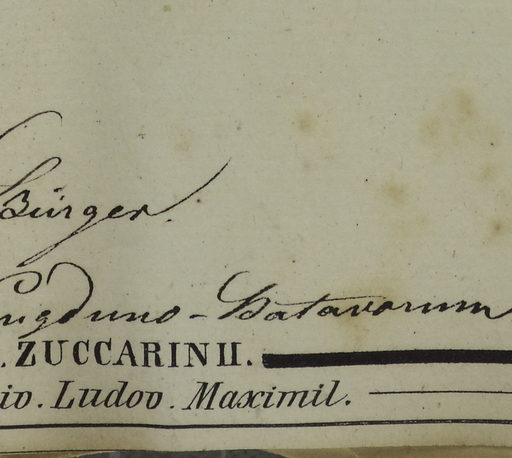 Bürger.
ugduno-Batavorum
. ZUCCARINII.
iv. Ludov. Maximil.